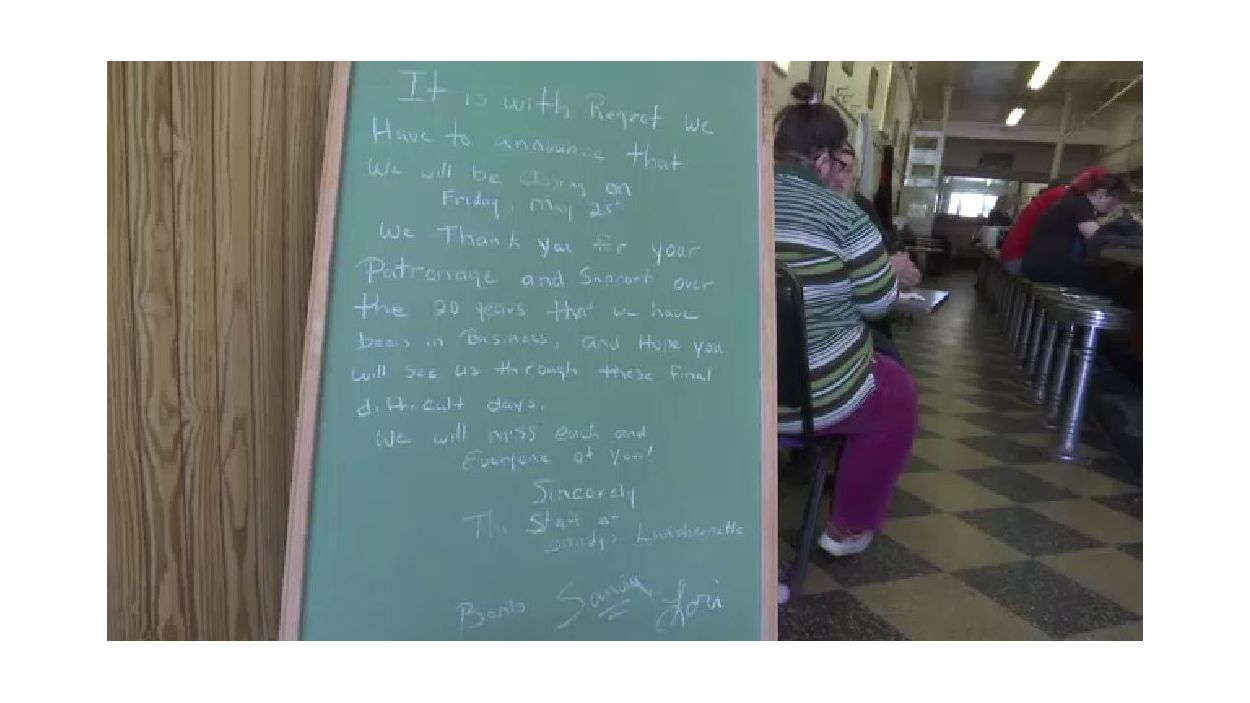 It is with Regret We
Have to announce that
We will be Closing on
Friday, May 25th
We Thank you for your
Patronage and Support over
the 20 years that we have
been in Business, and Hope you
will see us through these final
difficult days.
We will miss each and
Everyone of you!
Sincerely
The Staff at
Sandy's Luncheonette
Sandy Lori